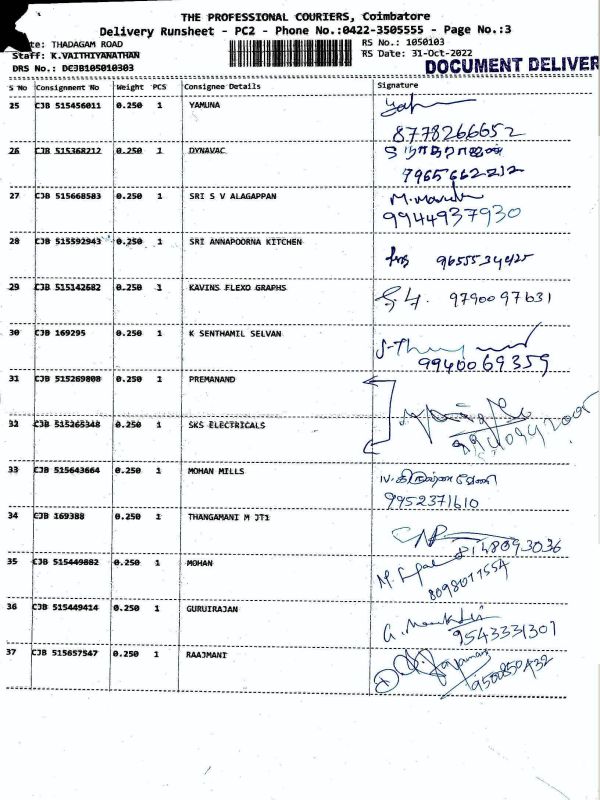 THE PROFESSIONAL COURIERS, Coimbatore
Delivery Runsheet - PC2 - Phone No.:0422-3505555 - Page No.:3
te: THADAGAM ROAD RS No.: 1050103
Staff: K.VAITHIYANATHAN RS Date: 31-Oct-2022
DRS No.: DCJB105010303 DOCUMENT DELIVER
S No Consignment No Weight PCS Consignee Details Signature
25 CJB 515456011 0.250 1 YAMUNA
8778266652
26 CJB 515368212 0.250 1 DYNAVAC
7965662212
27 CJB 515668583 0.250 1 SRI S V ALAGAPPAN
9944937930
28 CJB 515592943 0.250 1 SRI ANNAPOORNA KITCHEN
9655534425
29 CJB 515142682 0.250 1 KAVINS FLEXO GRAPHS
9790097631
30 CJB 169295 0.250 1 K SENTHAMIL SELVAN
9940069359
31 CJB 515269808 0.250 1 PREMANAND
32 CJB 515265348 0.250 1 SKS ELECTRICALS
33 CJB 515643664 0.250 1 MOHAN MILLS
9952371610
34 CJB 169388 0.250 1 THANGAMANI M JT1
8148093036
35 CJB 515449882 0.250 1 MOHAN
8098011554
36 CJB 515449414 0.250 1 GURUIRAJAN
9543331301
37 CJB 515657547 0.250 1 RAAJMANI
9500850432